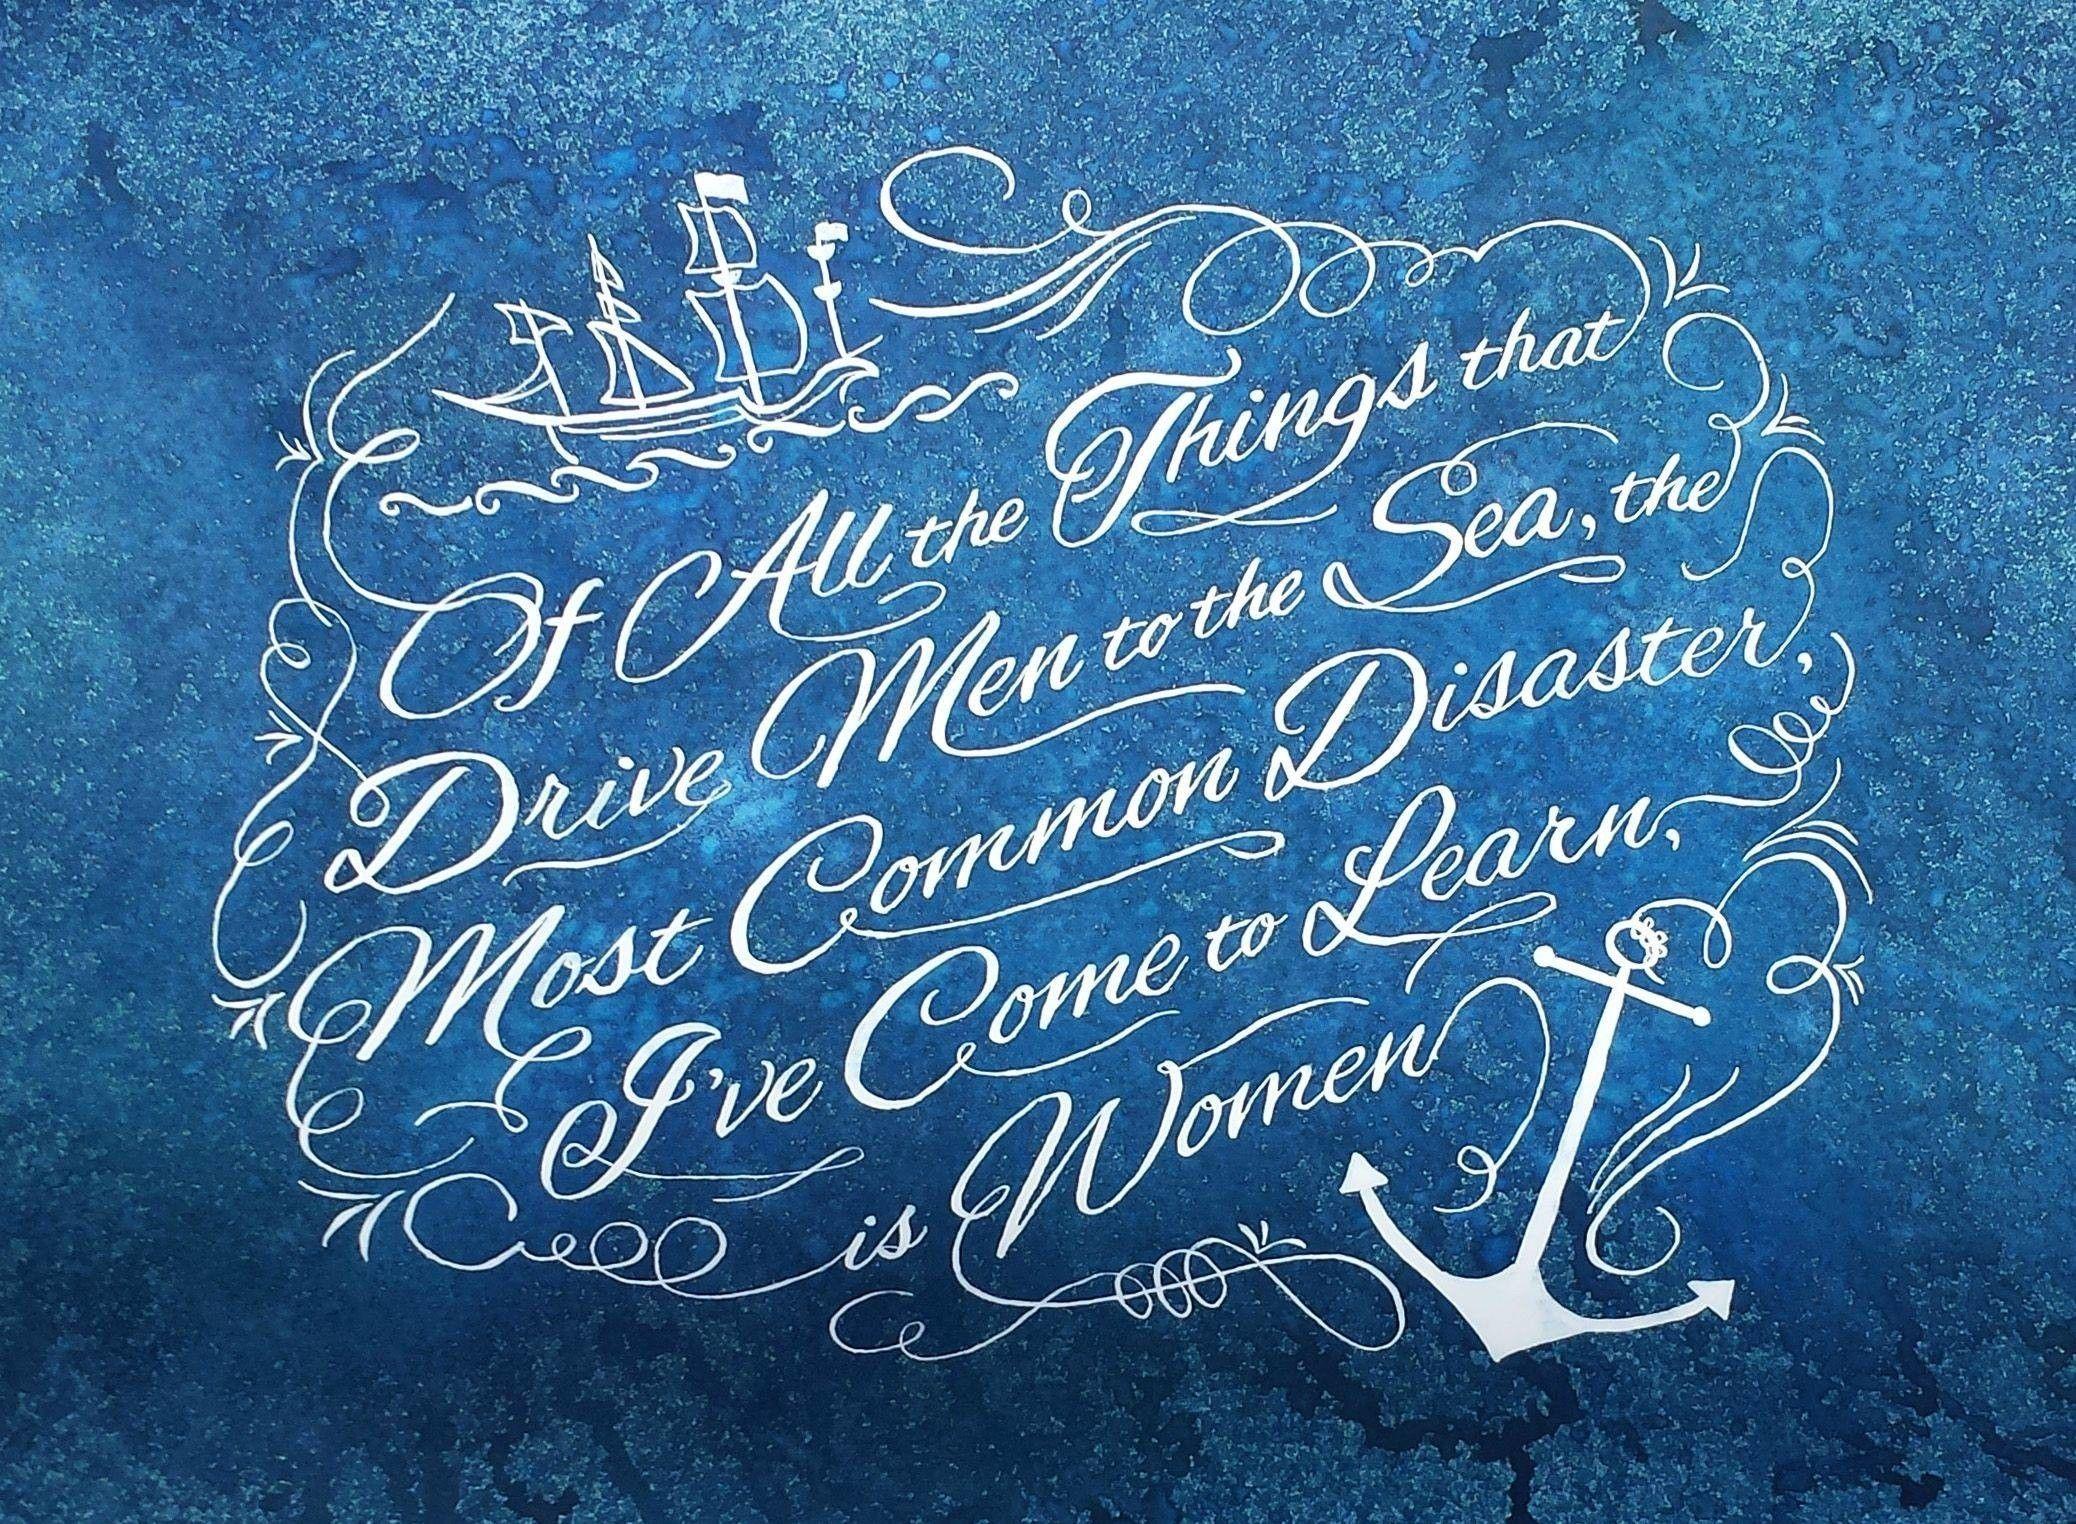 Of All the Things that
Drive Men to the Sea, the
Most Common Disaster,
I've Come to Learn,
is Women